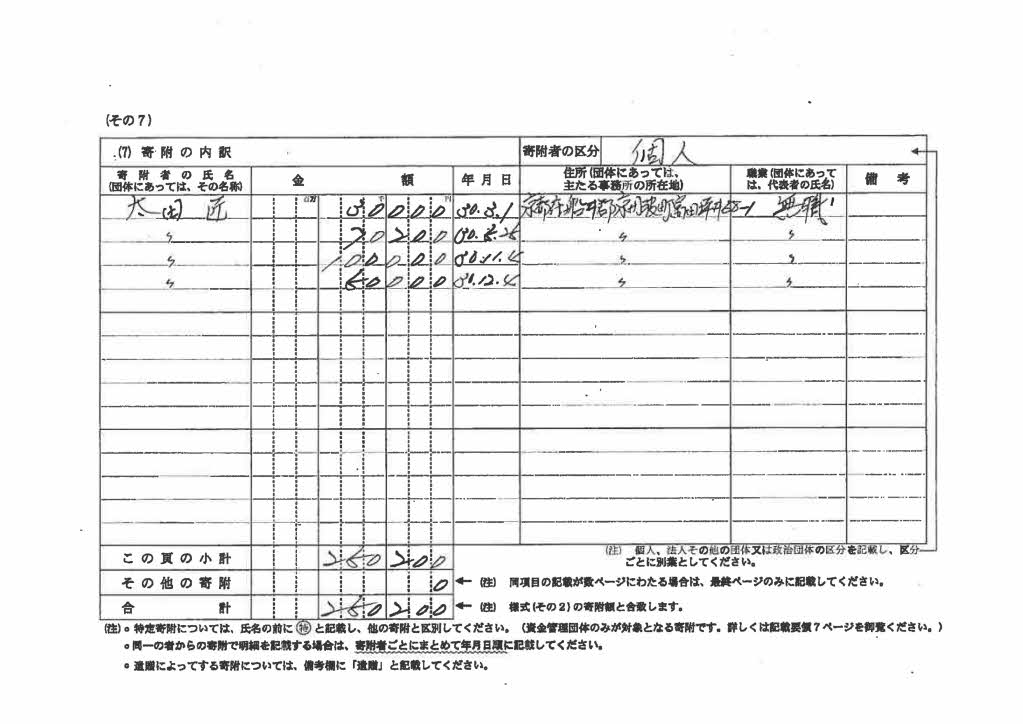 (その7)
(7) 寄附の内訳 寄附者の区分 個人
寄附者の氏名(団体にあっては、その名称) 金額 年月日 住所(団体にあっては、主たる事務所の所在地) 職業(団体にあっては、代表者の氏名) 備考
百万 千 円
太田 匠 30000 30.3.1 京都府船井郡京丹波町富田 無職
〃 70200 〃 〃
〃 100000 30.11. 〃 〃
〃 60000 30.12. 〃 〃
この頁の小計 260200
(注) 個人、法人その他の団体又は政治団体の区分を記載し、区分
ごとに別葉としてください。
その他の寄附 0 ← (注) 同項目の記載が数ページにわたる場合は、最終ページのみに記載してください。
合計 260200 ← (注) 様式(その2)の寄附額と合致します。
(注)○ 特定寄附については、氏名の前に㊕と記載し、他の寄附と区別してください。(資金管理団体のみが対象となる寄附です。詳しくは記載要領7ページを御覧ください。)
○ 同一の者からの寄附で明細を記載する場合は、寄附者ごとにまとめて年月日順に記載してください。
○ 遺贈によってする寄附については、備考欄に「遺贈」と記載してください。